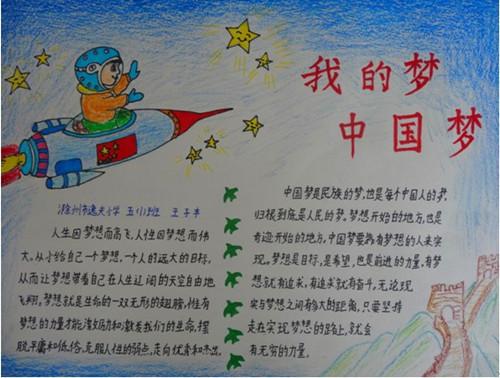 我的梦
中国梦
滁州市逸夫小学 五(1)班 王子
人生因梦想而高飞,人性因梦想而伟
大。从小给自己一个梦想,一个人的远大的目标,
从而让梦想带着自己在人生辽阔的天空自由地
飞翔,梦想就是生命的一双无形的翅膀,惟有
梦想的力量才能激发我们的生命,摆
脱平庸和低俗,克服人性的弱点,走向优秀和杰出。
中国梦是民族的梦,也是每个中国人的梦,
归根到底是人民的梦,梦想开始的地方,也是
奇迹开始的地方,中国梦要靠有梦想的人来实
现。梦想是目标,是希望,也是前进的力量,有梦
想就有追求,有追求就有奋斗,无论现
实与梦想之间有多大的距离,只要坚持
走在实现梦想的路上,就会
有无穷的力量。